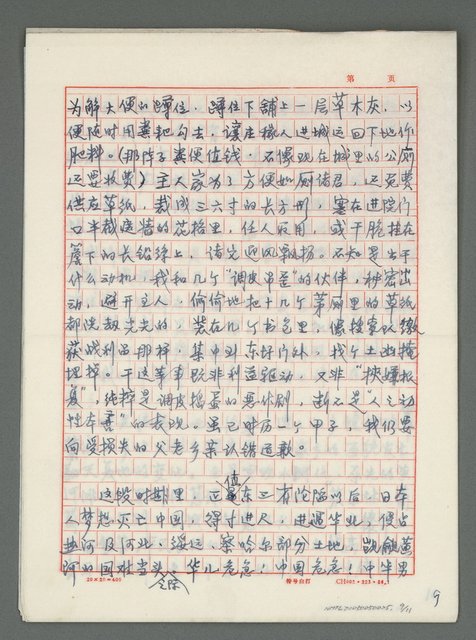 第 页
为解大便的蹲位，蹲位下铺上一层草木灰，以
便随时用粪耙勾去，让庄稼人进城运回下地作
肥料。（那阵子粪便值钱，不像现在城里的公厕
还要收费）主人家为了方便如厕诸君，还免费
供应草纸，裁成三六寸的长方形，塞在进院门
口半截医装的花格里，任人取用，或干脆挂在
檐下的长铅丝上，诸凭迎风飘扬。不知是出于
什么动机，我和几个“调皮串蛋”的伙伴，秘密出
动，避开主人，偷偷地把十几个茅厕里的草纸
都洗劫光光的，装在几个书包里，像搜索队缴
获战利品那样，集中到东圩门外，找个土幽掩
埋掉。干这等事既非利益驱动，又非“挟嫌报
复”，纯粹是调皮捣蛋的恶作剧，断不是“人之初
性本善”的表现。虽已时历一个甲子，我仍要
向受损失的父老乡亲认错道歉。
这段时期里，正值东三省沦陷以后，日本
人梦想灭亡中国，得寸进尺，进逼华北，侵占
热河及河北、绥远、察哈尔部分土地，觊觎黄
河的国难当头，华北危急！中国危急！中华男
全际
20×20=400
特号自打
9
NMTL20050050005, 9/11